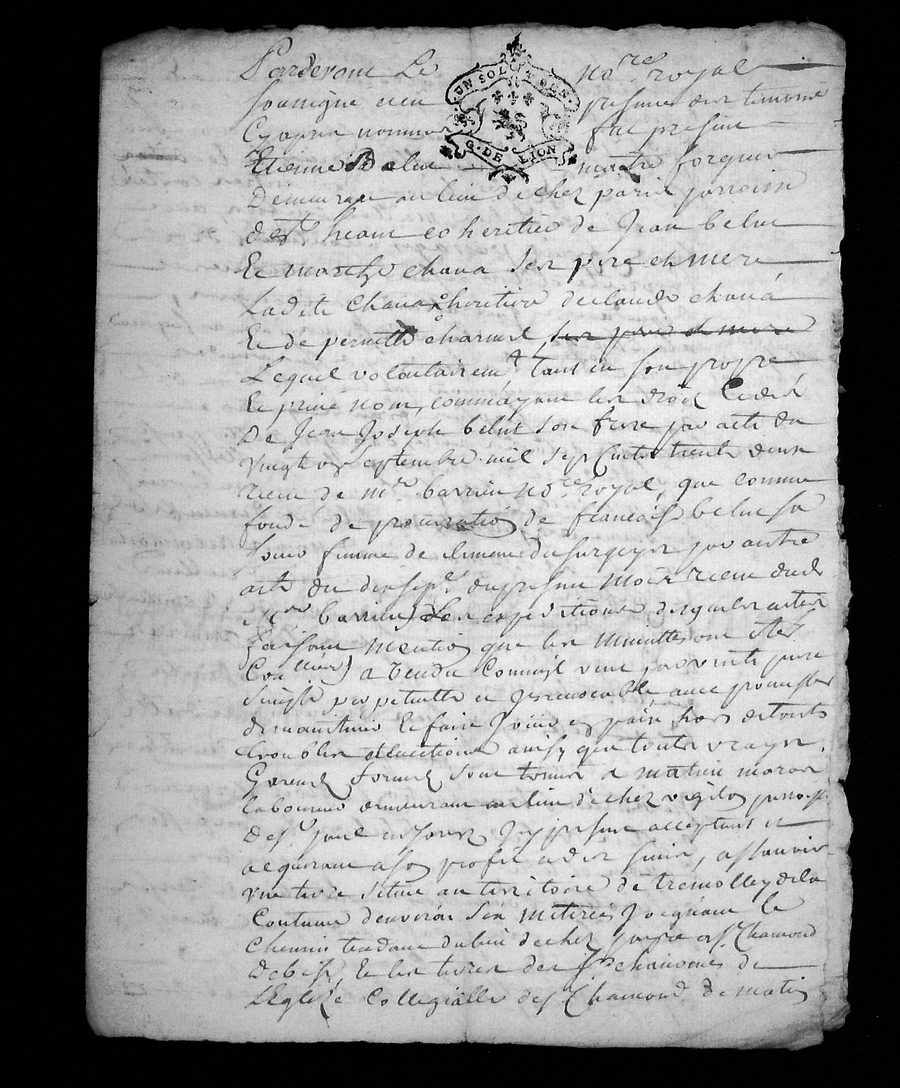 Pardevant Le no.re royal
soussigne et en presence des temoins
Cy apres nommes fut present
UN SOL
G. DE LION
Etienne Belue maitre forgeur
Demeurant au lieu de chez parix paroisse
de st heant coheritier de Jean belue
Et chava son pere et mere
Ladite chava heritiere de claude chava
Et de pernette charmet son pere et mere
Lequel volontairem.t tant en son propre
Et privé nom, comme ayant les droits Cedés
De Jean Joseph belue son frere par acte du
vingt septembre mil sept cents trente deux
recu de m.re barrieu no.re royal, que comme
fondé de procuration de francoise belue sa
soeur femme de par autre
acte du dix sep.t du present mois recu dud.
M.re barrieu, Les expeditions desquels actes
faisant mention que les minuttes ont etés
Con.llées) a vendu comme il vend par vente pure
simple perpetuelle et irrevocable avec promesse
de maintenir Et faire Jouir en paix hors de touts
troubles et evictions ainsy que touts vrays
Garends formels sont tenus a matieu
laboureur demeurant au lieu de chez paroisse
De st paul en Jarez Icy present acceptant et
acquerant a son profit et des siens, a scavoir
une terre située au territoire de tremolley de la
Contenue d'environ six meterées Joignant le
Chemin tendant du lieu de chez a st Chamond
De bise, Et les terres des srs chanoines de
L'Eglize Collegialle de st Chamond de matin